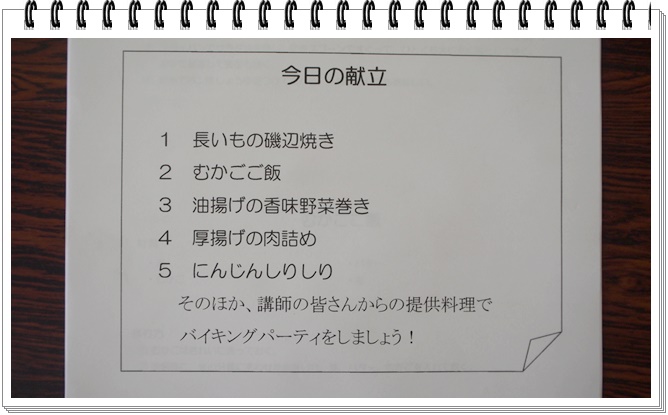 今日の献立
1 長いもの磯辺焼き
2 むかごご飯
3 油揚げの香味野菜巻き
4 厚揚げの肉詰め
5 にんじんしりしり
そのほか、講師の皆さんからの提供料理で
バイキングパーティをしましょう！